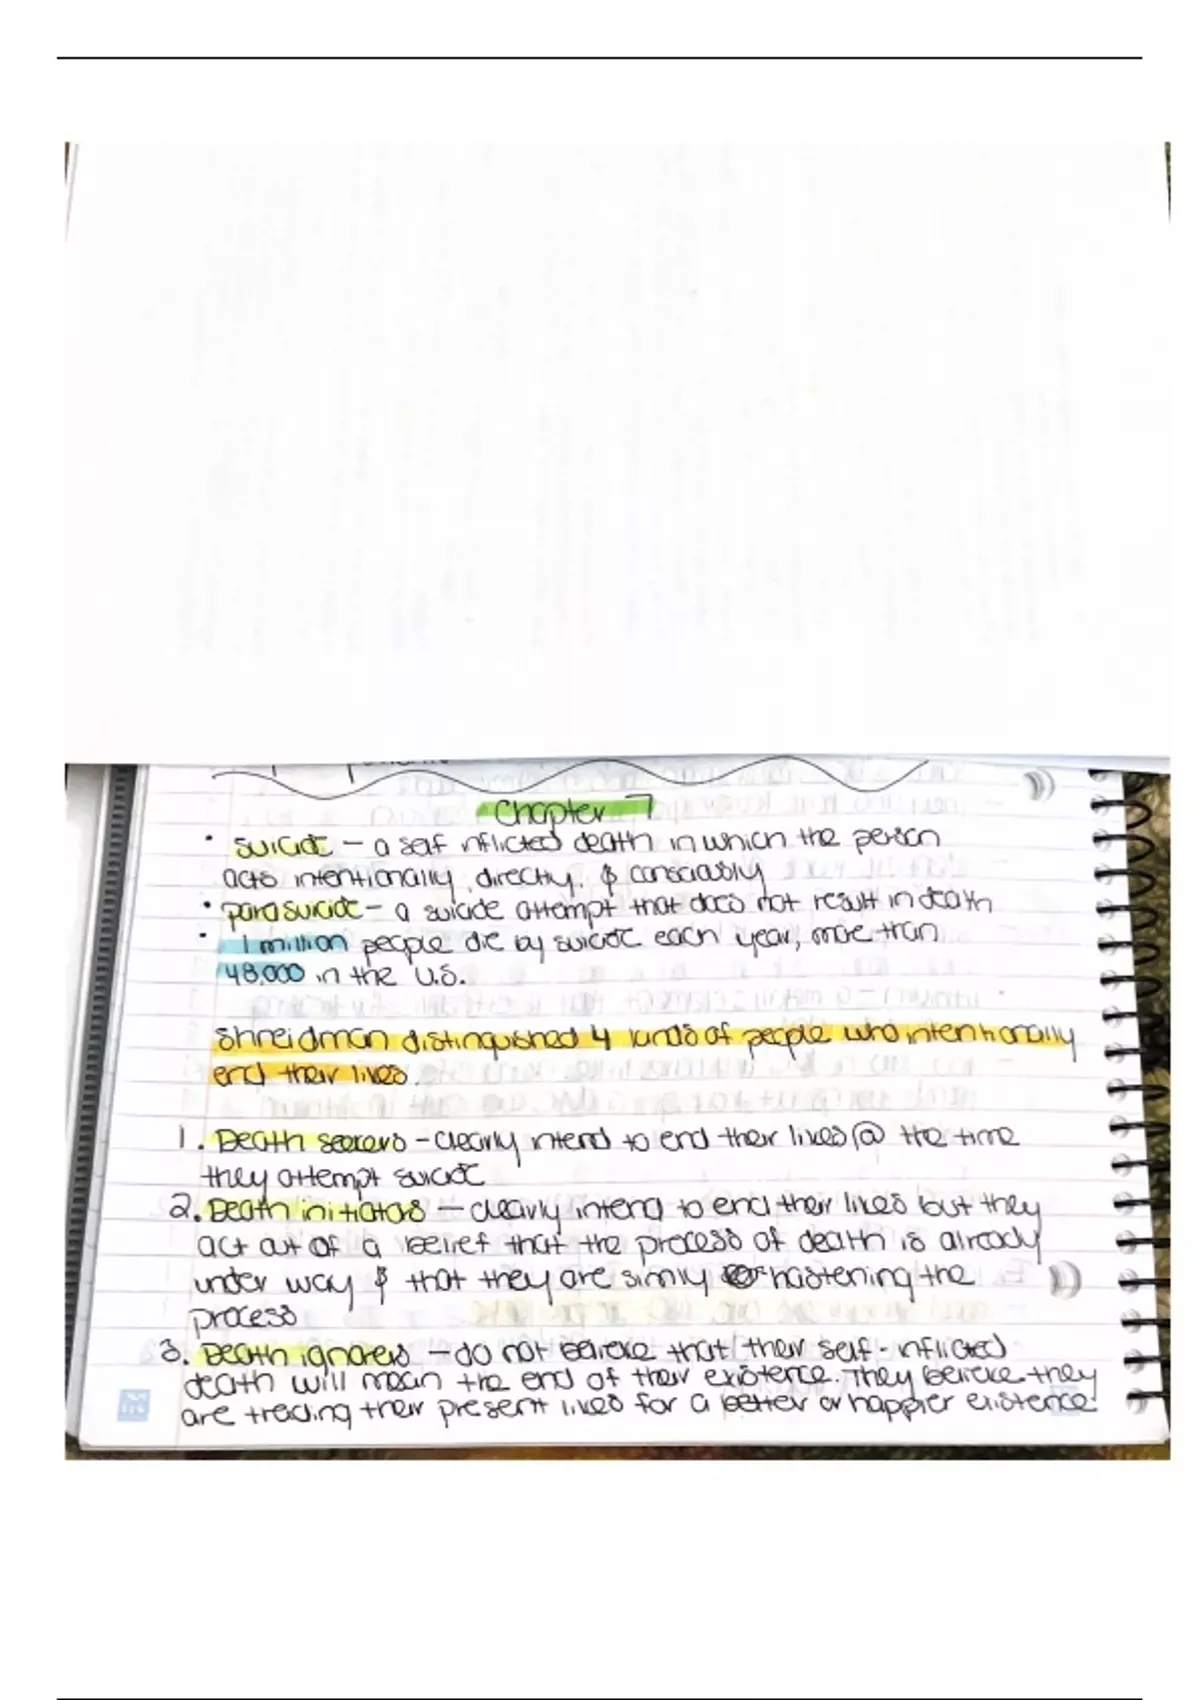 Chapter 7
• suicide – a self inflicted death in which the person
acts intentionally, directly, & consciously
• parasuicide – a suicide attempt that does not result in death
• 1 million people die by suicide each year, more than
48,000 in the U.S.
Shneidman distinguished 4 kinds of people who intentionally
end their lives.
1. Death seekers – clearly intend to end their lives @ the time
they attempt suicide
2. Death initiators – clearly intend to end their lives but they
act out of a belief that the process of death is already
under way & that they are simply hastening the
process
3. Death ignorers – do not believe that their self-inflicted
death will mean the end of their existence. They believe they
are trading their present lives for a better or happier existence.